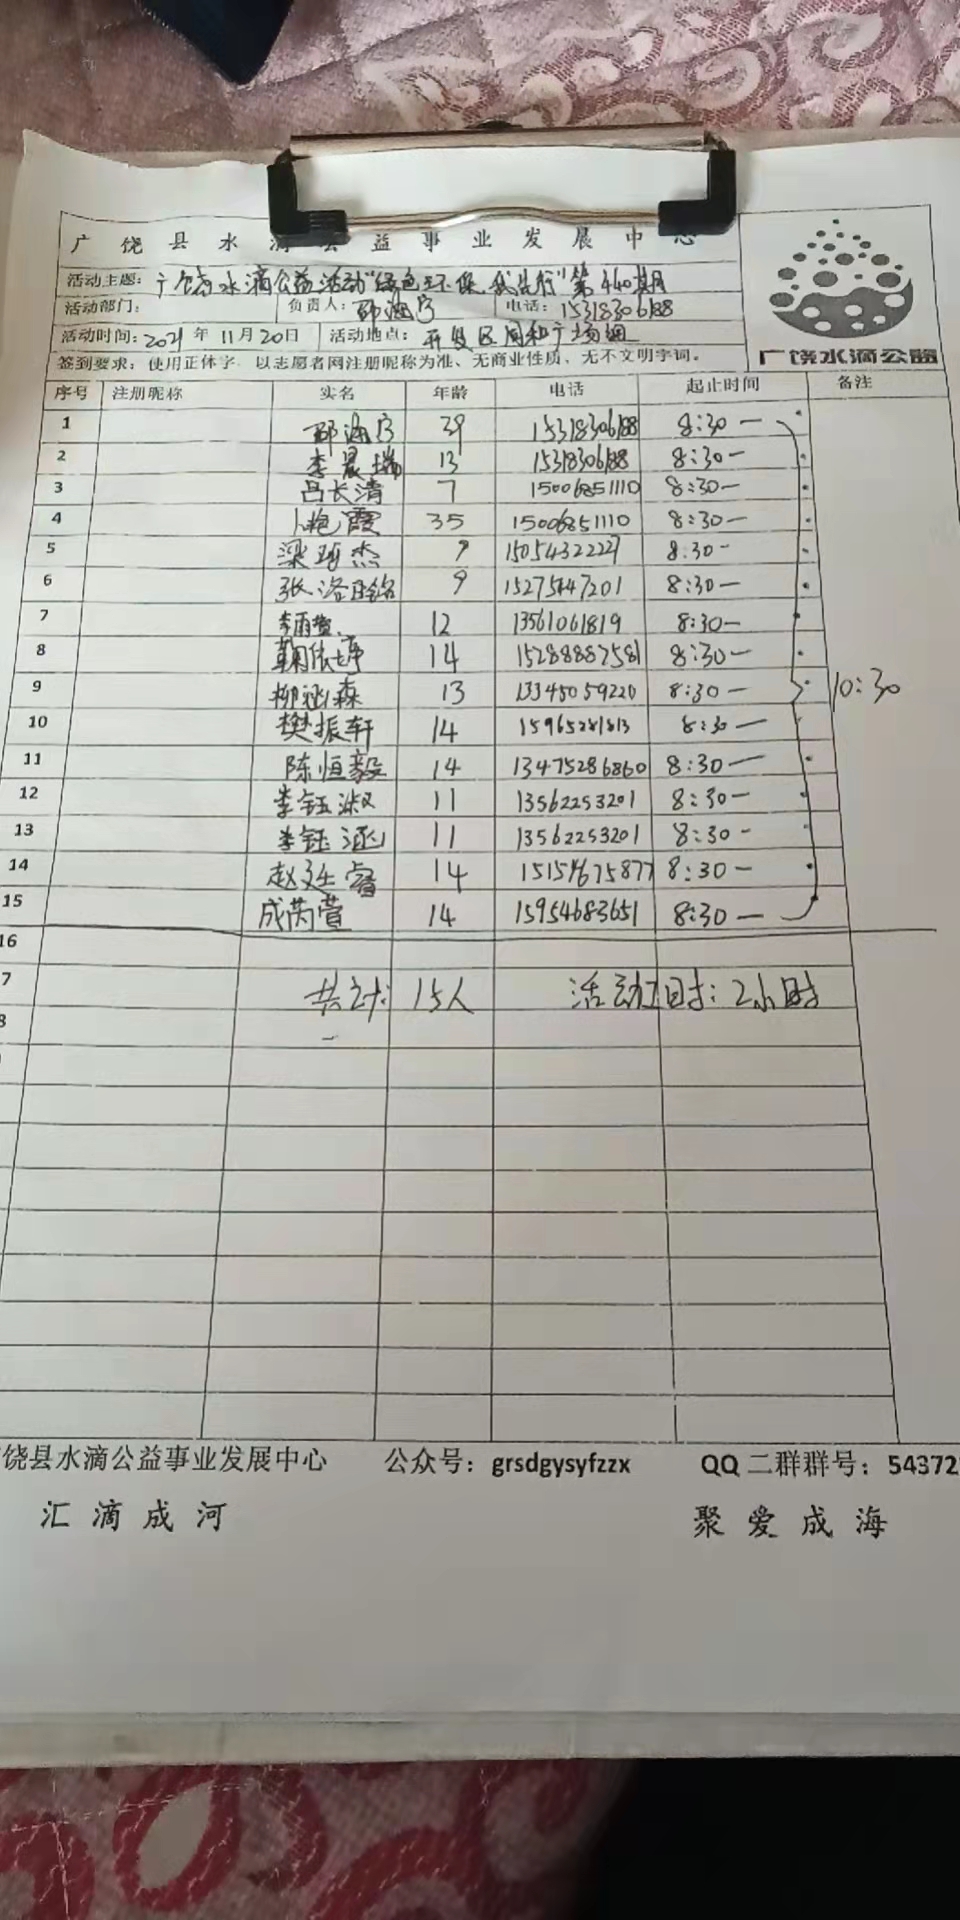 广饶县水滴公益事业发展中心
活动主题：广饶水滴公益活动"绿色环保、我先行"第440期
活动部门： 负责人： 电话：15318306188
活动时间：2021年11月20日 活动地点：开发区同和广场
签到要求：使用正体字．以志愿者网注册昵称为准、无商业性质、无不文明字词。
广饶水滴公益
序号 注册昵称 实名 年龄 电话 起止时间 备注
1 39 15318306188 8:30—
2 李晨瑞 13 15318306188 8:30—
3 吕长清 7 15006851110 8:30—
4 35 15006851110 8:30—
5 梁 杰 9 15054322227 8:30-
6 张洛铭 9 15275447201 8:30—
7 李雨萱 12 13561061819 8:30—
8 鞠依婷 14 15288887581 8:30—
9 柳涵森 13 13345059220 8:30— 10:30
10 樊振轩 14 15965281813 8:30—
11 陈恒毅 14 13475286860 8:30—
12 李钰淑 11 13562253201 8:30—
13 李钰涵 11 13562253201 8:30-
14 赵廷睿 14 15154675877 8:30—
15 成芮萱 14 15954683651 8:30—
16
7 共计 15人 活动用时：2小时
8
饶县水滴公益事业发展中心 公众号：grsdgysyfzzx QQ二群群号：54372
汇滴成河 聚爱成海